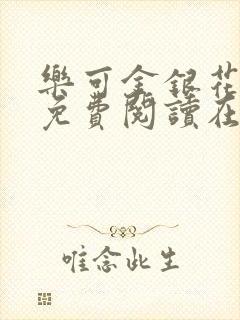 樂可金銀花
免費閱讀在
唯念此生